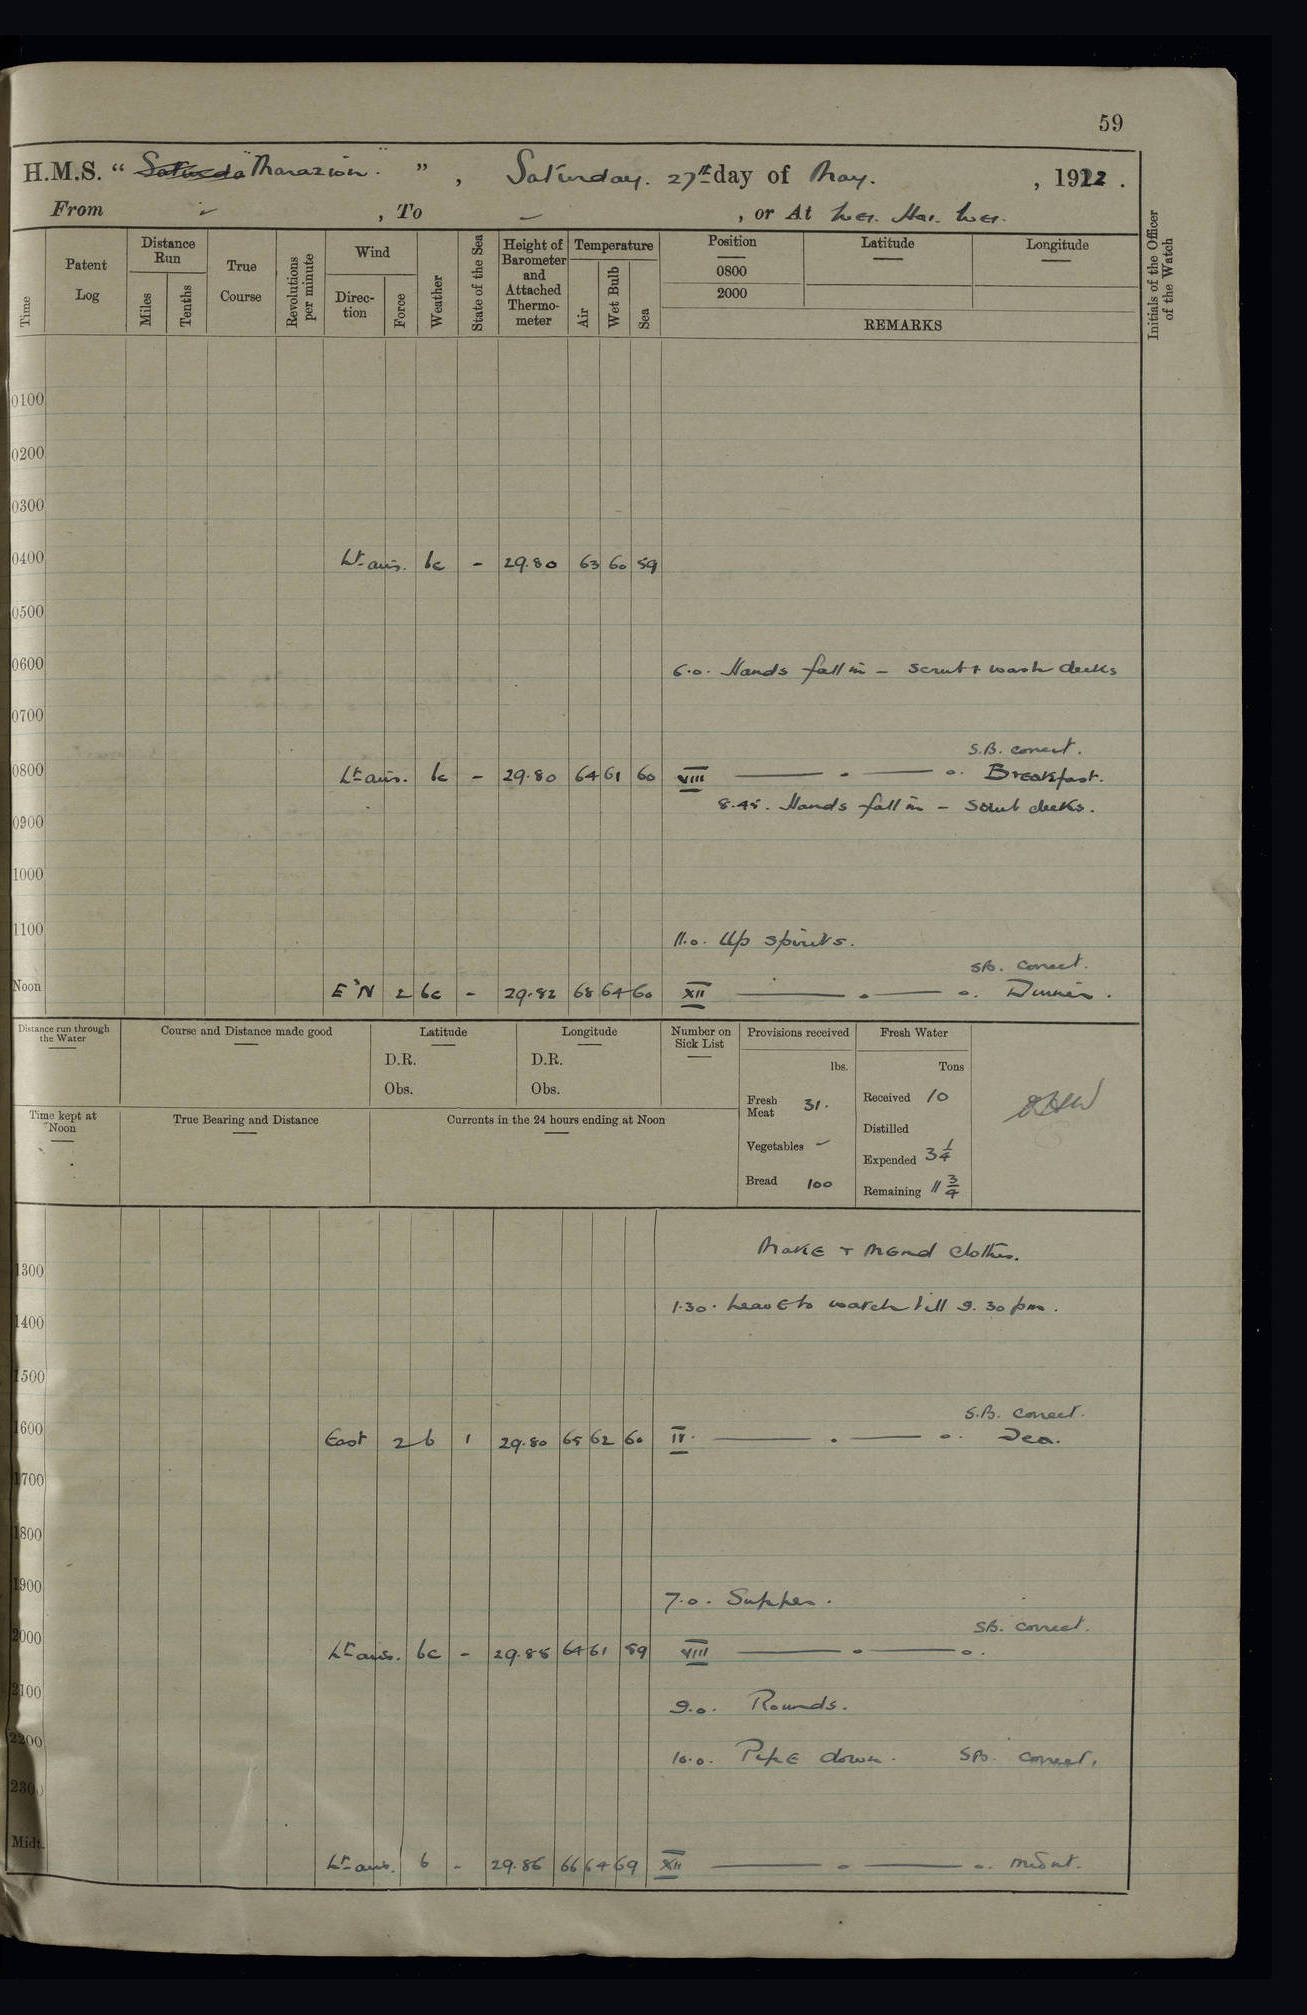 59
H.M.S. " "Marazion." " , Saturday. 27th day of May. , 1922.
From – , To – , or At Wei. Hai. Wei.
Time
Patent Log
Distance Run
Miles
Tenths
True Course
Revolutions per minute
Wind
Direction
Force
Weather
State of the Sea
Height of Barometer and Attached Thermometer
Temperature
Air
Wet Bulb
Sea
Position
0800
2000
Latitude
Longitude
REMARKS
Initials of the Officer of the Watch
0100
0200
0300
0400 Lt airs. bc - 29.80 63 60 59
0500
0600 6.0. Hands fall in – scrub & wash decks
0700
S.B. correct.
0800 Lt airs. bc - 29.80 64 61 60 VIII —— . —— o. Breakfast.
8.45. Hands fall in – scrub decks.
0900
1000
1100 11.0. Up spirits.
SB. correct.
Noon E'N 2 bc - 29.82 68 64 60 XII —— . —— o. Dinner.
Distance run through the Water
Course and Distance made good
Latitude
D.R.
Obs.
Longitude
D.R.
Obs.
Number on Sick List
Provisions received
lbs.
Fresh Meat 31.
Vegetables –
Bread 100
Fresh Water
Tons
Received 10
Distilled
Expended 3 1/4
Remaining 11 3/4
Time kept at Noon
True Bearing and Distance
Currents in the 24 hours ending at Noon
Make & Mend clothes.
1300
1.30. Leave to watch till 9.30 pm.
1400
1500
S.B. correct.
1600 East 2 b 1 29.80 65 62 60 IV. —— . —— o. Tea.
1700
1800
1900 7.0. Supper.
SB. correct.
2000 Lt airs. bc - 29.85 64 61 59 VIII —— o —— o.
2100 9.0. Rounds.
2200 10.0. Pipe down. SB. correct.
2300
Midt. Lt airs. b - 29.86 66 64 69 XII —— o —— o. midnt.